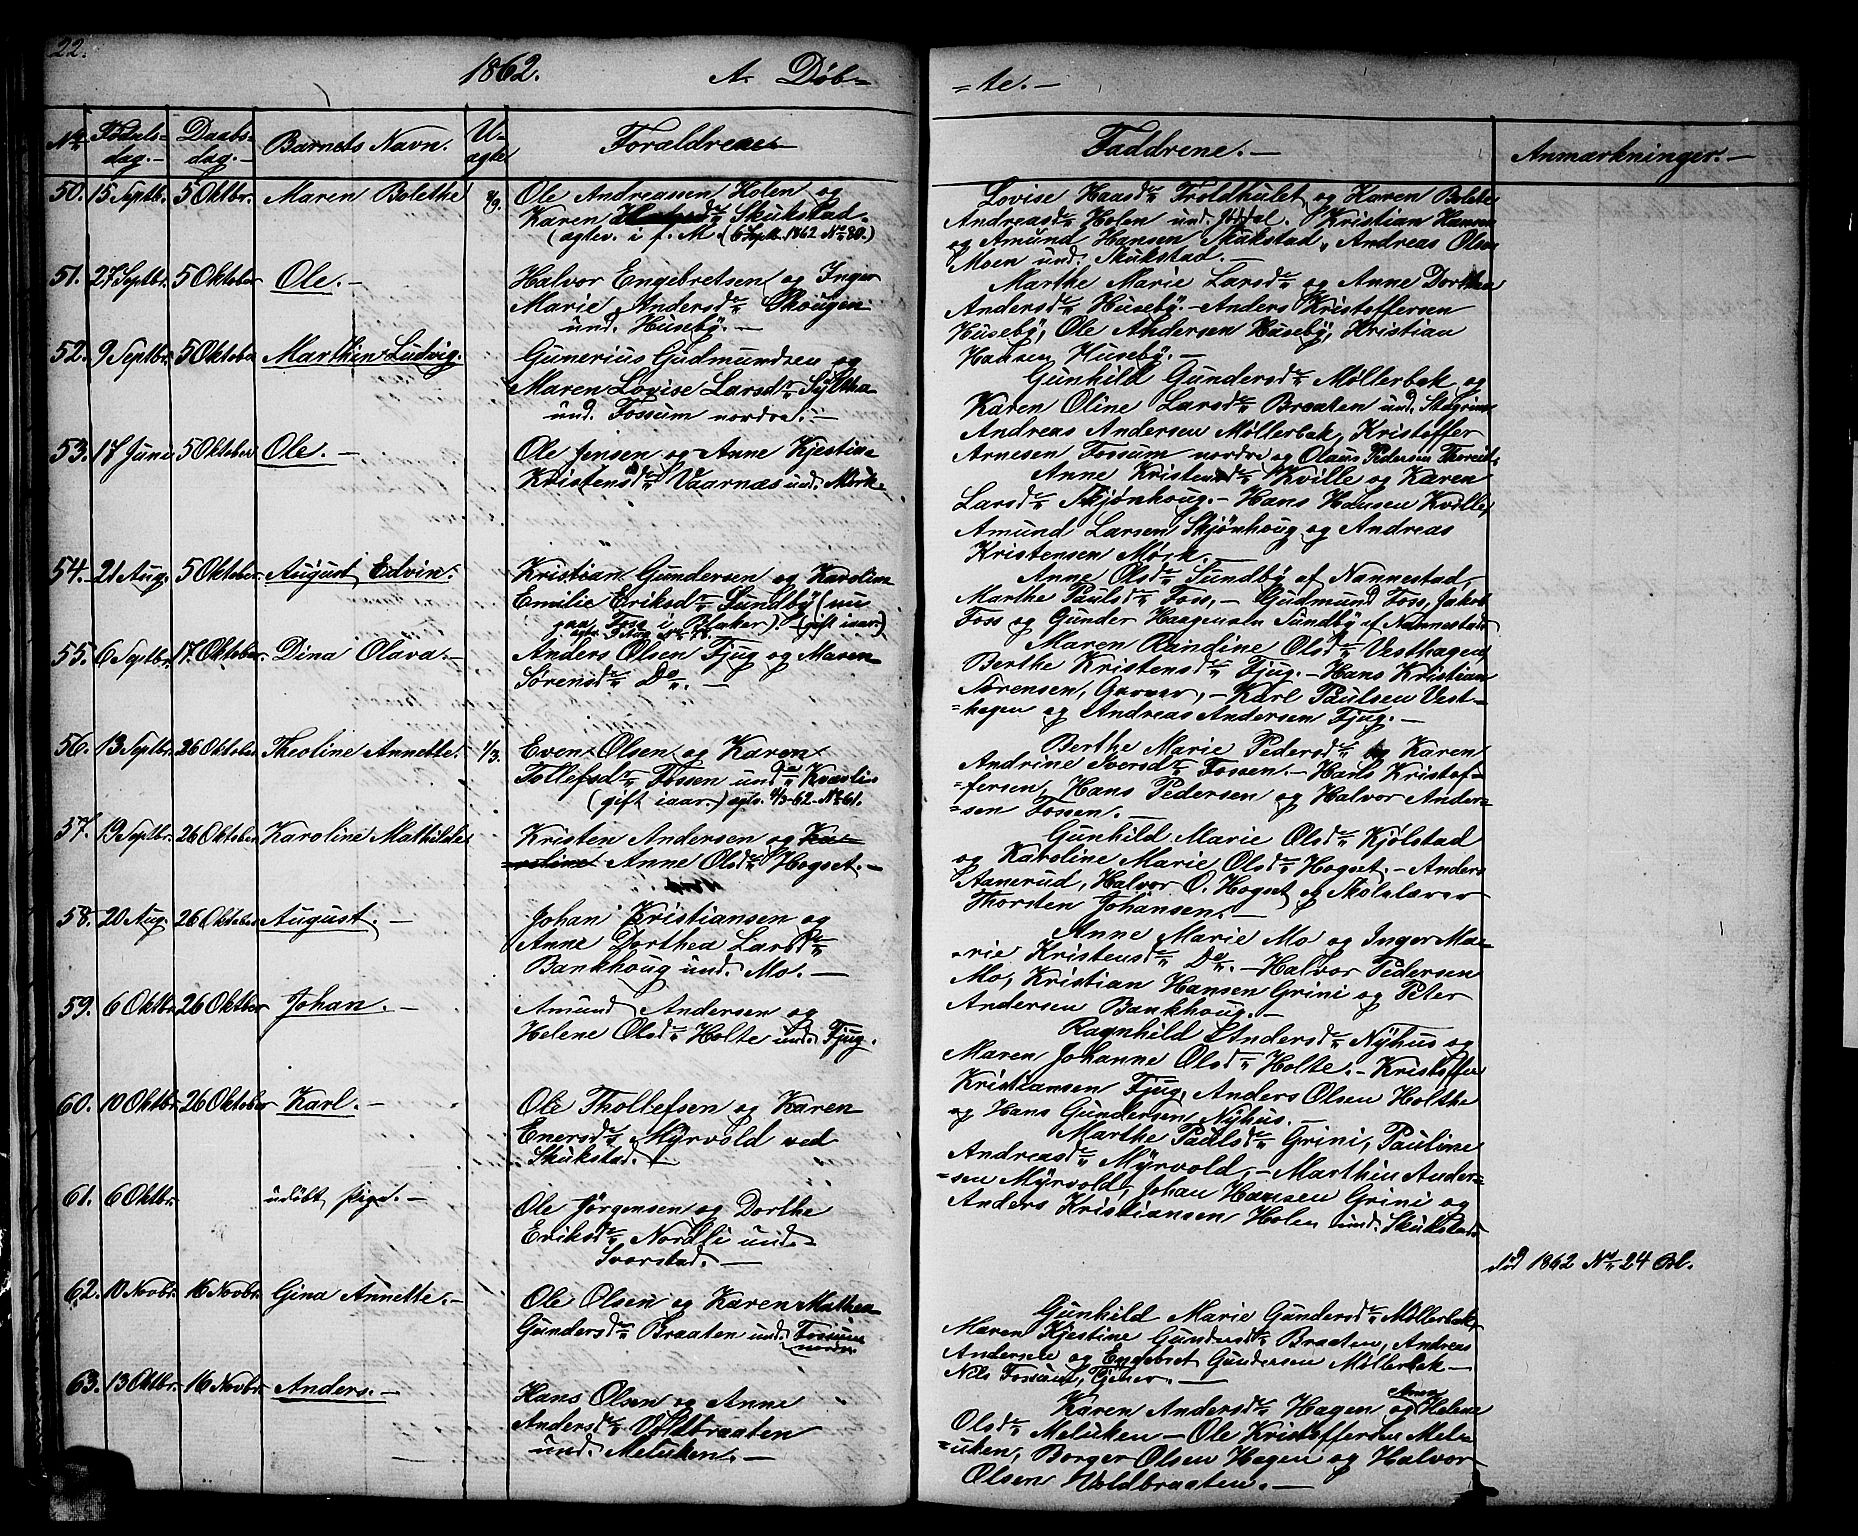 22.
1862. A. Døb=
=te.—
No. Fødsels- dag.— Daabs- dag.— Barnets Navn. U- ægte Forældrene.— Faddrene.— Anmærkninger.—
50. 15 Septbr. 5 Oktbr. Maren Bolethe Ole Andreassen Holen og
Karen Skukstad.
(agtev. i f. M. (6 Septb. 1862 No. 80.)
Lovise Haasd. Troldhulet og Karen Bolette
Andreasd. Holen und. Kristian Hansen
og Amund Hansen Skukstad, Andreas Olsen
Moen und. Skukstad.—
51. 27 Septbr. 5 Oktober Ole.— Halvor Engebretsen og Inger
Marie Andersd. Skougen
und. Husebÿ.—
Marthe Marie Larsd. og Anne Dorthea
Andersd. Husebÿ.— Anders Kristoffersen
Husebÿ, Ole Andersen Husebÿ, Kristian
Hansen Husebÿ.—
52. 9 Septbr. 5 Oktober Marthin Ludvig. Gunerius Gudmundsen og
Maren Lovise Larsd. Sÿltha
und. Fossum nordre.—
Gunhild Gundersd. Møllerbæk og
Karen Oline Larsd. Braaten und.
Andreas Andersen Møllerbæk, Kristoffer
Arnesen Fossum nordre og Olaus Pedersen
53. 17 Juni 5 Oktober Ole.— Ole Jensen og Anne Kjestine
Kristensd. Vaarnæs und. Mørk.
Anne Kristensd. Kville og Karen
Larsd. Skjønhoug.— Hans Hansen Kville,
Amund Larsen Skjønhoug og Andreas
Kristensen Mørk.—
54. 21 Aug. 5 Oktober August Edvin. Kristian Gundersen og Karoline
Emilie Eriksd. Sundbÿ (nu
paa Foss i Blaker). (gift iaar.)
Anne Olsd. Sundbÿ af Nannestad,
Marthe Paulsd. Foss,— Gudmund Foss, Jakob
Foss og Gunder Haagensen Sundbÿ af Nannestad.
55. 6 Septbr. 17. Oktober. Dina Olava.— Anders Olsen Fjug og Maren
Sørensd. Do.—
Maren Randine Olsd. Vesthagen,
Berthe Kristensd. Fjug.— Hans Kristian
Sørensen, — Karl Paulsen Vest-
=hagen og Andreas Andersen Fjug.—
56. 13 Septbr. 26 Oktober Theoline Annette. 1/3. Even Olsen og Karen
Tollefsd. Fossen und. Kvæeli
(gift iaar.) agtv. 4/3-62. No. 61.
Berthe Marie Pedersd. og Karen
Andrine Iversd. Fossen.— Hans Kristof-
=fersen, Hans Pedersen og Halvor Ander-
=sen Fossen.—
57. 19 Septbr. 26 Oktober Karoline Mathilde Kristen Andersen og Ka-
roline Anne Olsd. Hogset.—
Gunhild Marie Olsd. Kjølstad
og Karoline Marie Olsd. Hogset.— Anders
Aanerud, Halvor O. Hogset og Skolelærer
Thorsten Johansen.—
58. 20 Aug. 26 Oktober August.— Johan Kristiansen og
Anne Dorthea Larsd.
Bankhoug und. Mo.—
Anne Marie Mo og Inger Ma-
-rie Kristensd. Do.— Halvor Pedersen
Mo, Kristian Hansen Grini og Peter
Andersen Bankhoug.—
59. 6 Oktbr. 26 Oktber Johan.— Amund Andersen og
Helene Olsd. Holte und. Fjug.
Ragnhild Andersd. Nÿhus og
Maren Johanne Olsd. Holte.— Kristoffer
Kristiansen Fjug, Anders Olsen Holthe
og Hans Gundersen Nÿhus.—
60. 10 Oktbr. 26 Oktober Karl.— Ole Thollefsen og Karen
Enersd. Mÿrvold ved
Skukstad.
Marthe Paulsd. Grini, Pauline
Andreasd. Mÿrvold,— Marthin Ander-
=sen Mÿrvold, Johan Hansen Grini og
Anders Kristiansen Holen und. Skukstad.
61. 6 Oktbr. udøbt pige.— Ole Jörgensen og Dorthe
Eriksd. Nordli und.
Svorstad.—
død 1862 No. 24
62. 10 Novbr. 16 Novbr. Gina Annette.— Ole Olsen og Karen Mathea
Gundersd. Braaten und. Fossum
nordre
Gunhild Marie Gundersd. Møllerbæk,
Maren Kjestine Gundersd. Braaten, Andreas
Andersen og Engebret Gundersen Møllerbæk—
Nils Fossum, Tjener.—
63. 13 Oktbr. 16 Novbr. Anders.— Hans Olsen og Anne
Andersd. Voldbraaten
und. Meluken.—
Karen Andersd. Hagen og Helene
Olsd. Meluken— Ole Kristoffersen Mel-
=uken, Borger Olsen Hagen og Halvor
Olsen Voldbraaten.—